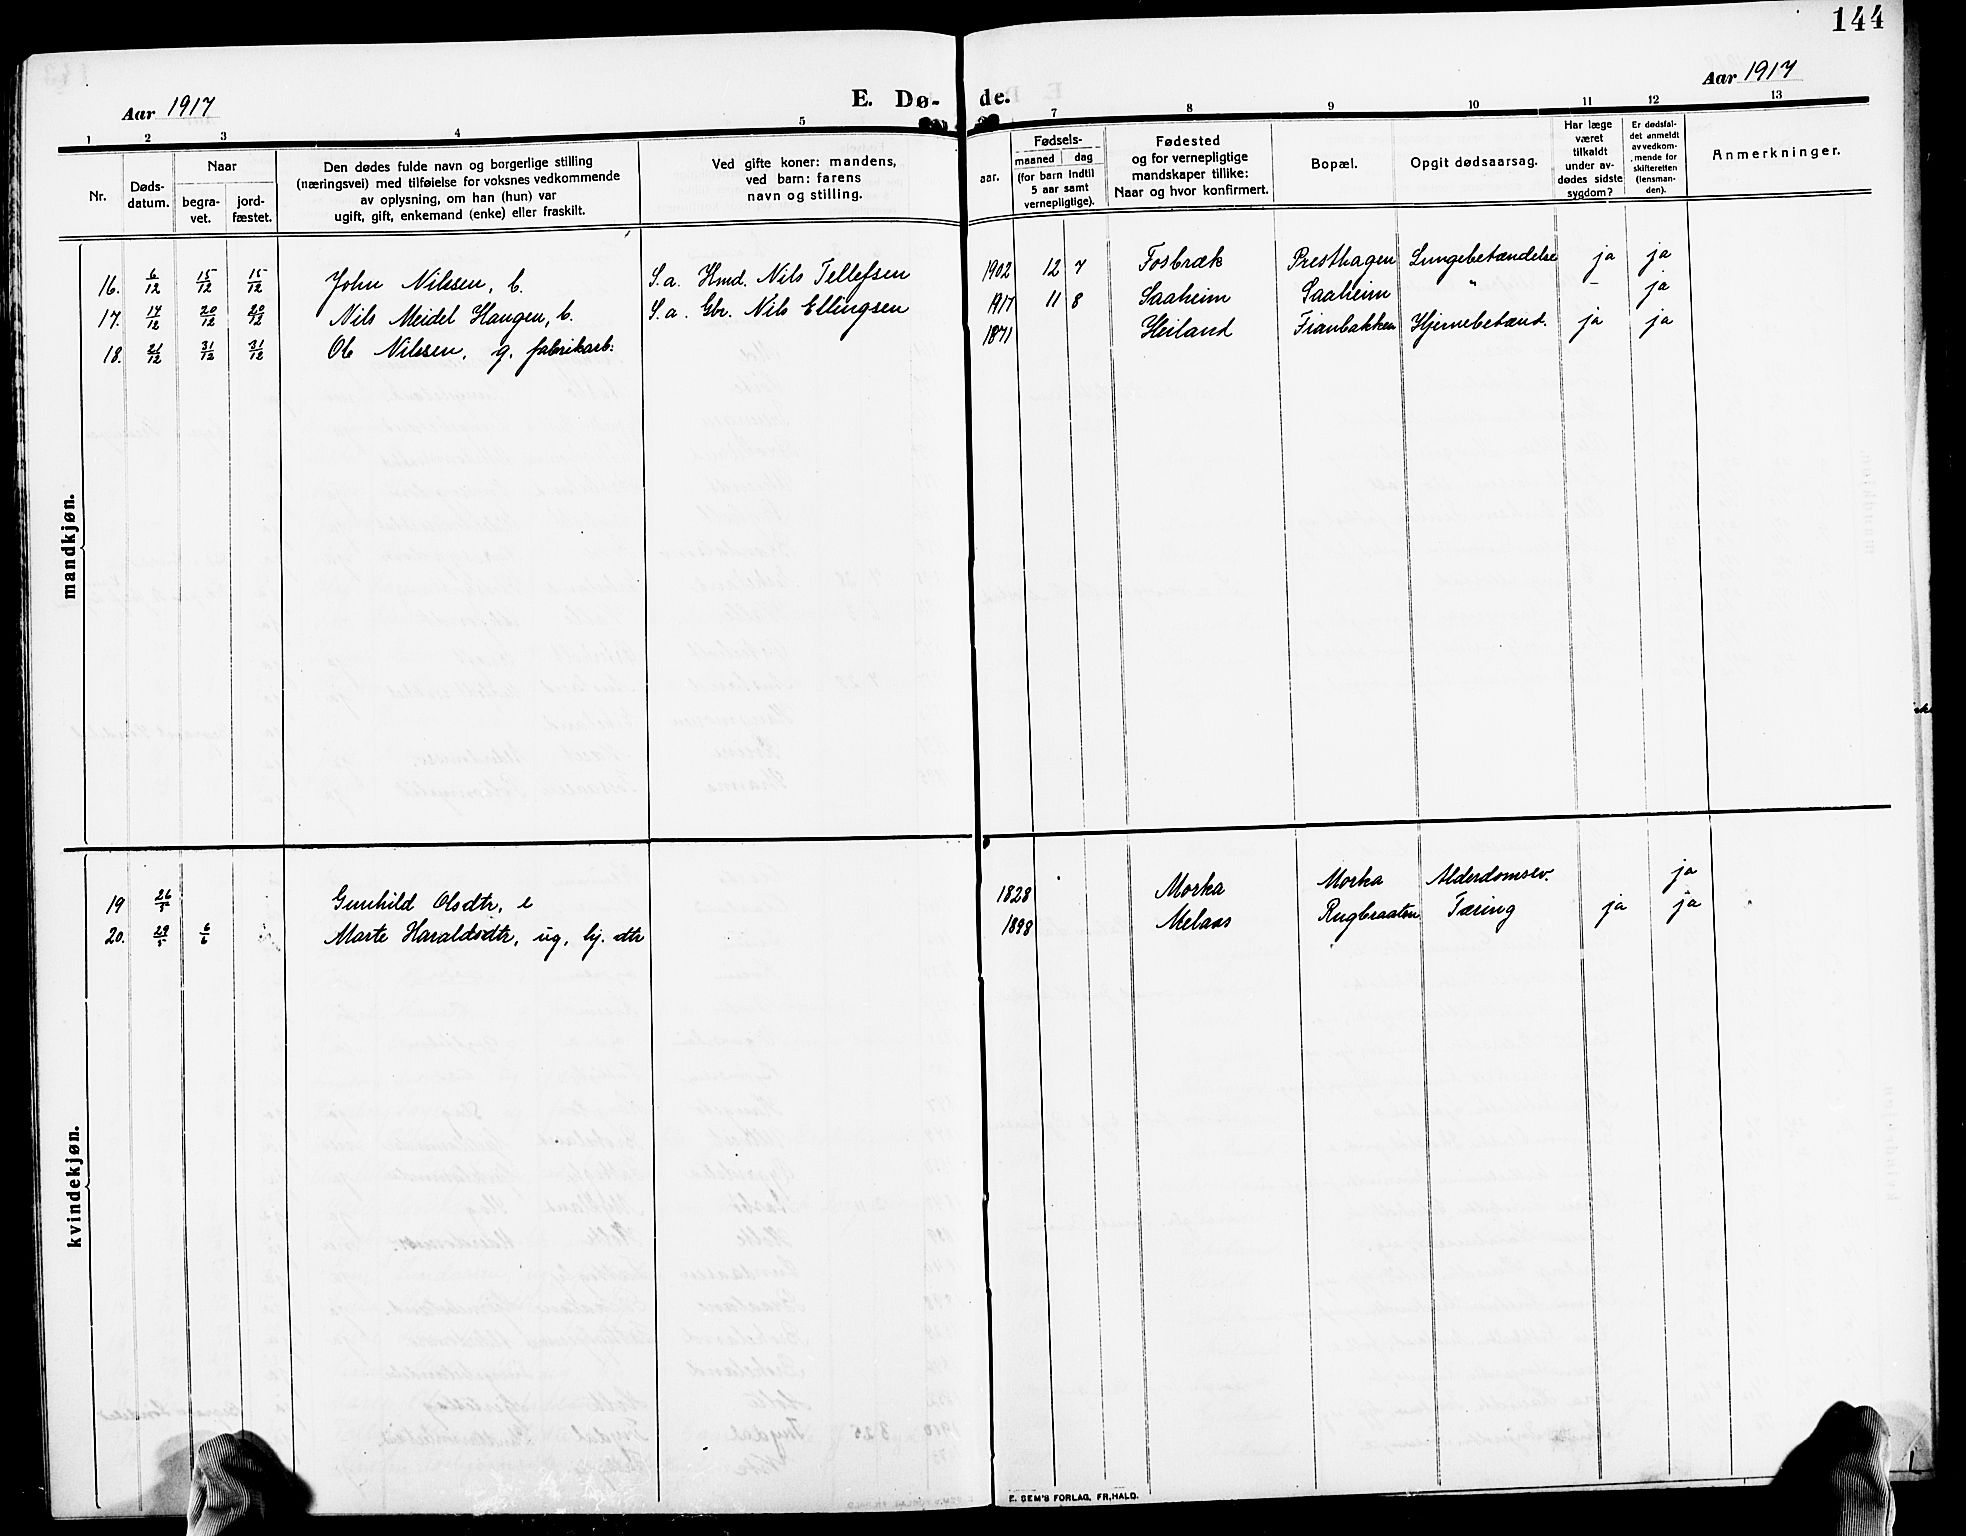 144
Aar 1917
E. Dø- de.
Aar 1917
1 2 3 4 5 7 8 9 10 11 12 13
Nr.
Døds-
datum.
Naar
begra-
vet.
jord-
fæstet.
Den dødes fulde navn og borgerlige stilling
(næringsvei) med tilføielse for voksnes vedkommende
av oplysning, om han (hun) var
ugift, gift, enkemand (enke) eller fraskilt.
Ved gifte koner: mandens,
ved barn: farens
navn og stilling.
aar.
Fødsels-
maaned dag
(for barn indtil
5 aar samt
vernepligtige).
Fødested
og for vernepligtige
mandskaper tillike:
Naar og hvor konfirmert.
Bopæl.
Opgit dødsaarsag.
Har læge
været
tilkaldt
under av-
dødes sidste
sygdom?
Er dødsfal-
det anmeldt
av vedkom-
mende for
skifteretten
(lensman-
den).
Anmerkninger.
mandkjøn.
16. 6/12 15/12 15/12 John Nilsen, b. S. a. Hmd. Nils Tellefsen 1902 12 7 Fosbræk Presthagen Lungebetændelse ja ja
17. 17/12 20/12 20/12 Nils Meidel Haugen, b. S. a. Gbr. Nils Ellingsen 1917 11 8 Saaheim Saaheim " - ja
18. 21/12 31/12 31/12 Ole Nilsen, g. fabrikarb. 1871 Heiland Fianbakken Hjernebetænd. ja ja
kvindekjøn.
19 26/5 Gunhild Olsdtr, e 1828 Morka Morka Alderdomssv. ja
20. 29/5 6/6 Marte Haraldsdtr, ug, hj. dtr 1898 Melaas Rugbraaten Tæring ja ja
E. SEM'S FORLAG, FR.HALD.